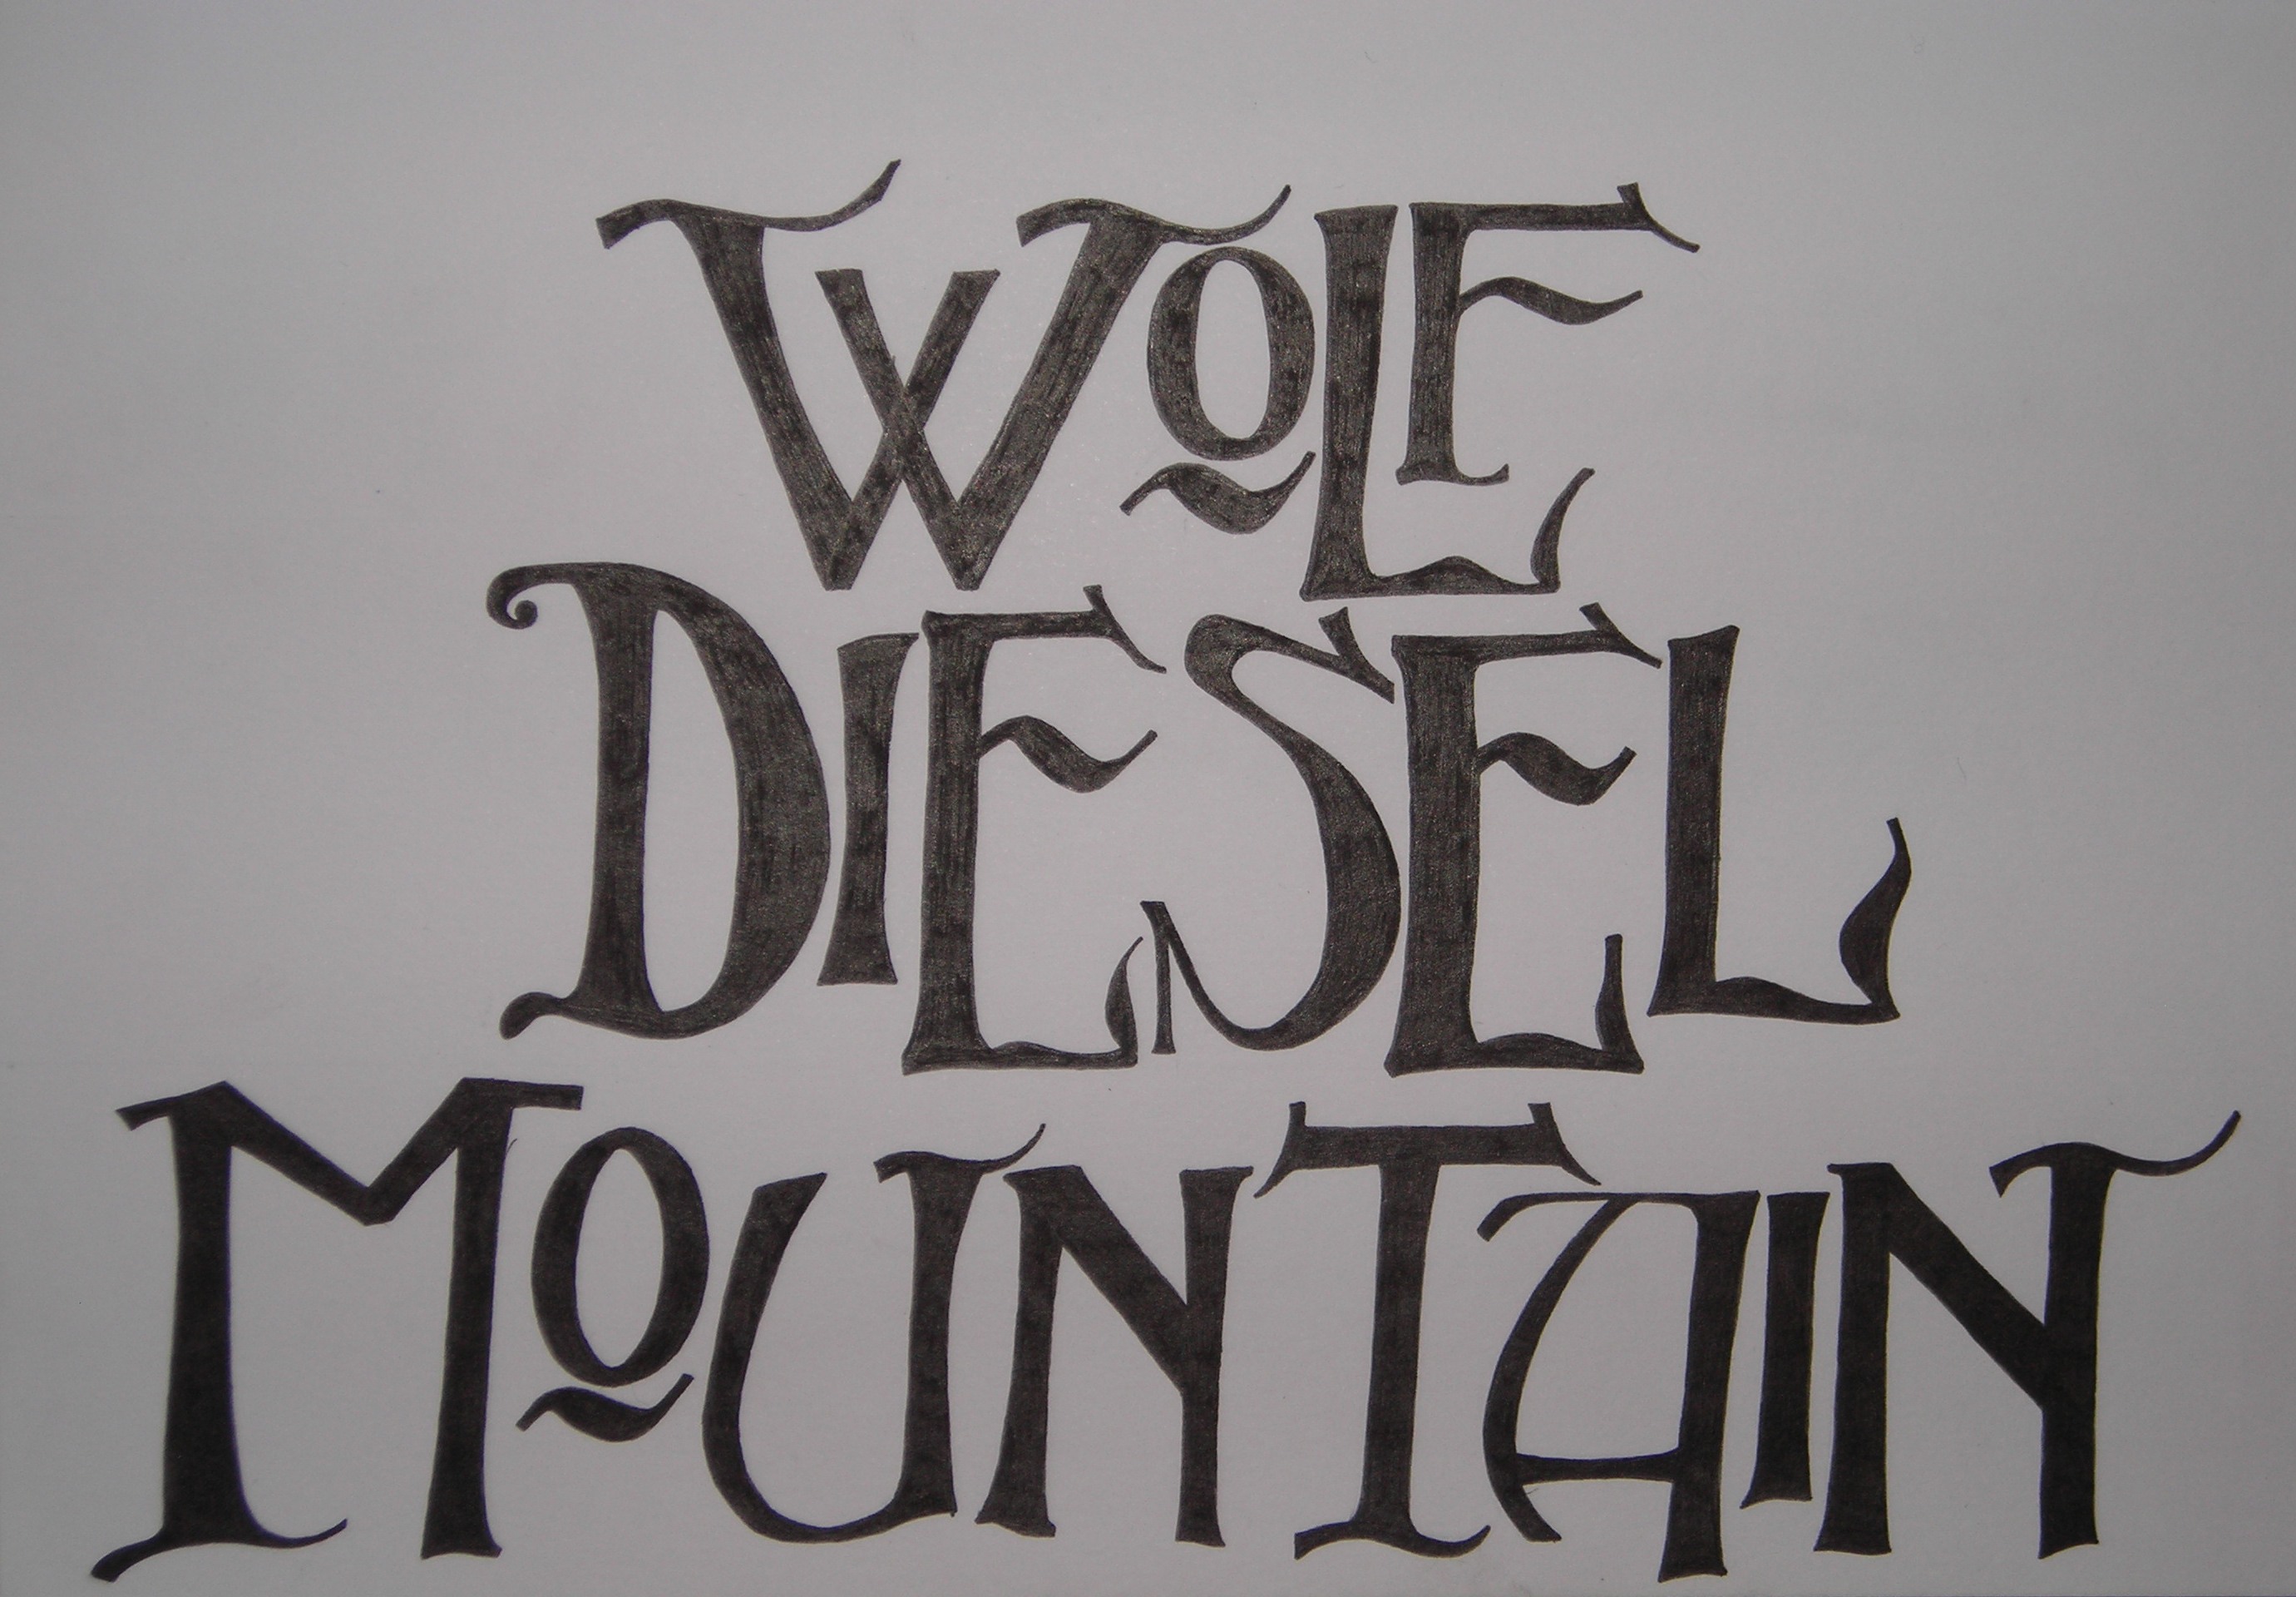 WOLF
DIESEL
MOUNTAIN